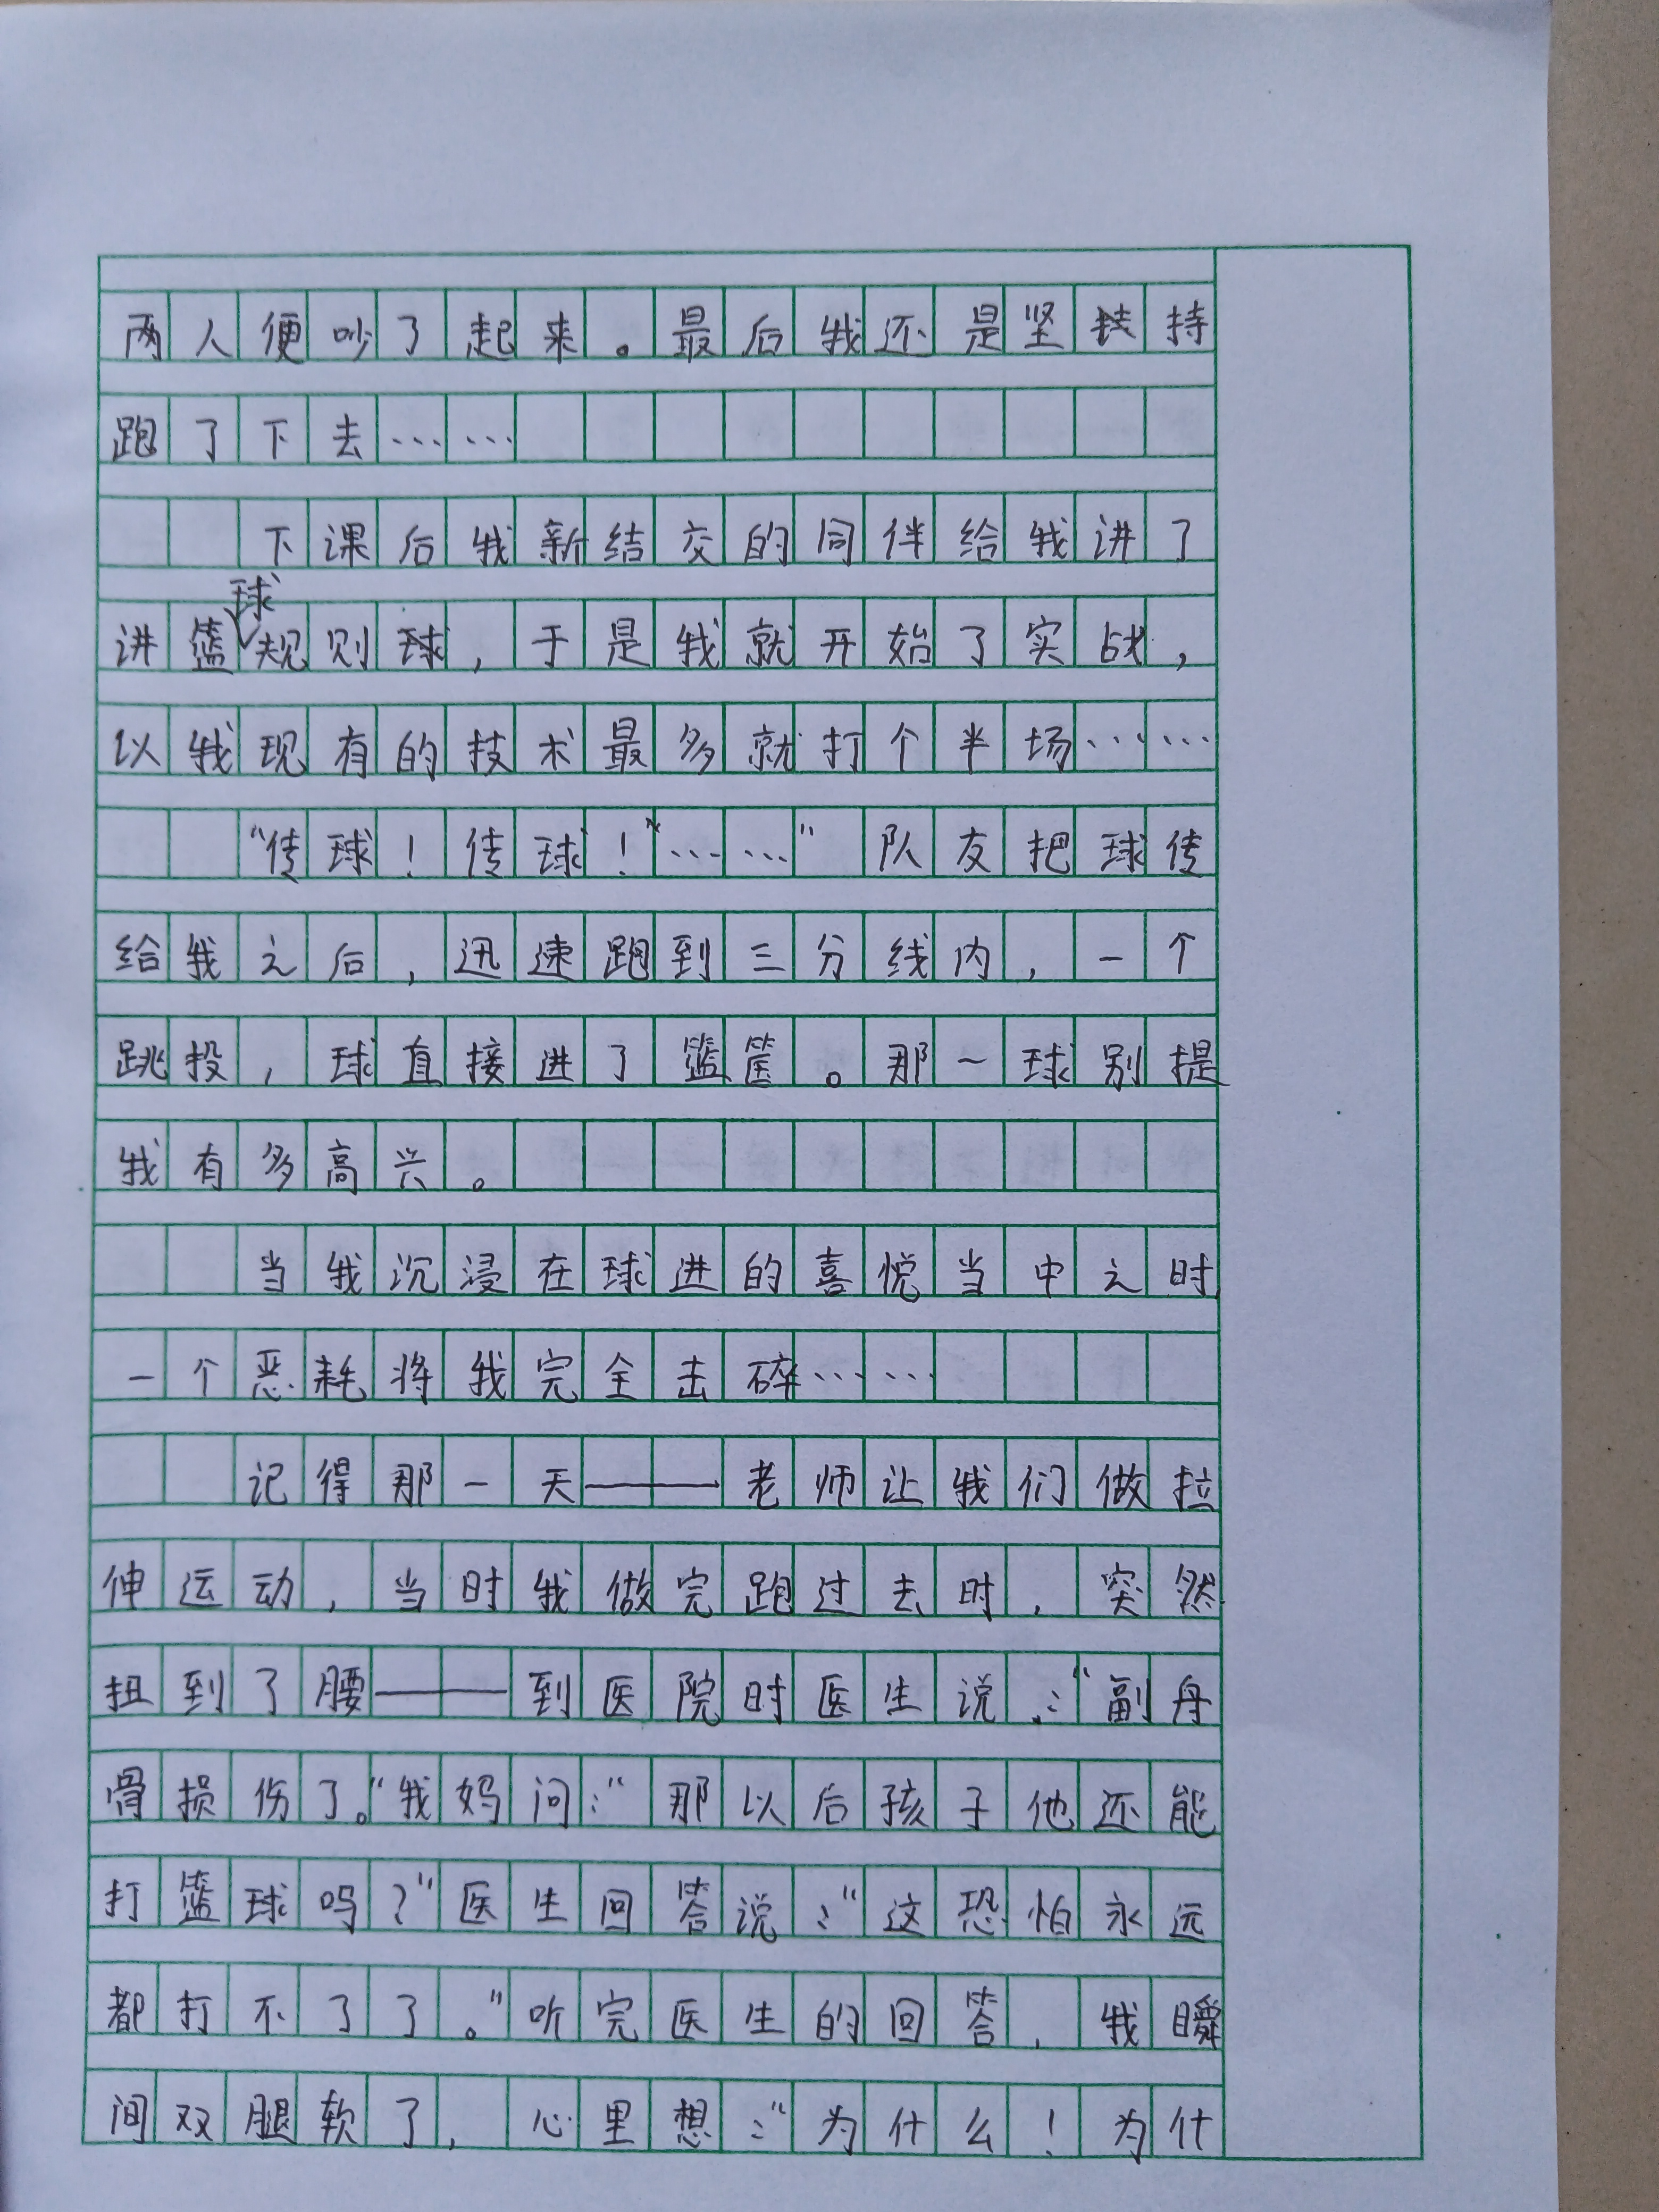 两人便吵了起来。最后我还是坚持
跑了下去……
下课后我新结交的同伴给我讲了
讲篮球规则球,于是我就开始了实战,
以我现有的技术最多就打个半场……
“传球!传球!”……”队友把球传
给我之后,迅速跑到三分线内,一个
跳投,球直接进了篮筐。那一球别提
我有多高兴。
当我沉浸在球进的喜悦当中之时
一个恶耗将我完全击碎……
记得那一天——老师让我们做拉
伸运动,当时我做完跑过去时,突然
扭到了腰——到医院时医生说:“副舟
骨损伤了。“我妈问:“那以后孩子他还能
打篮球吗?”医生回答说:“这恐怕永远
都打不了了。”听完医生的回答,我瞬
间双腿软了,心里想:“为什么!为什